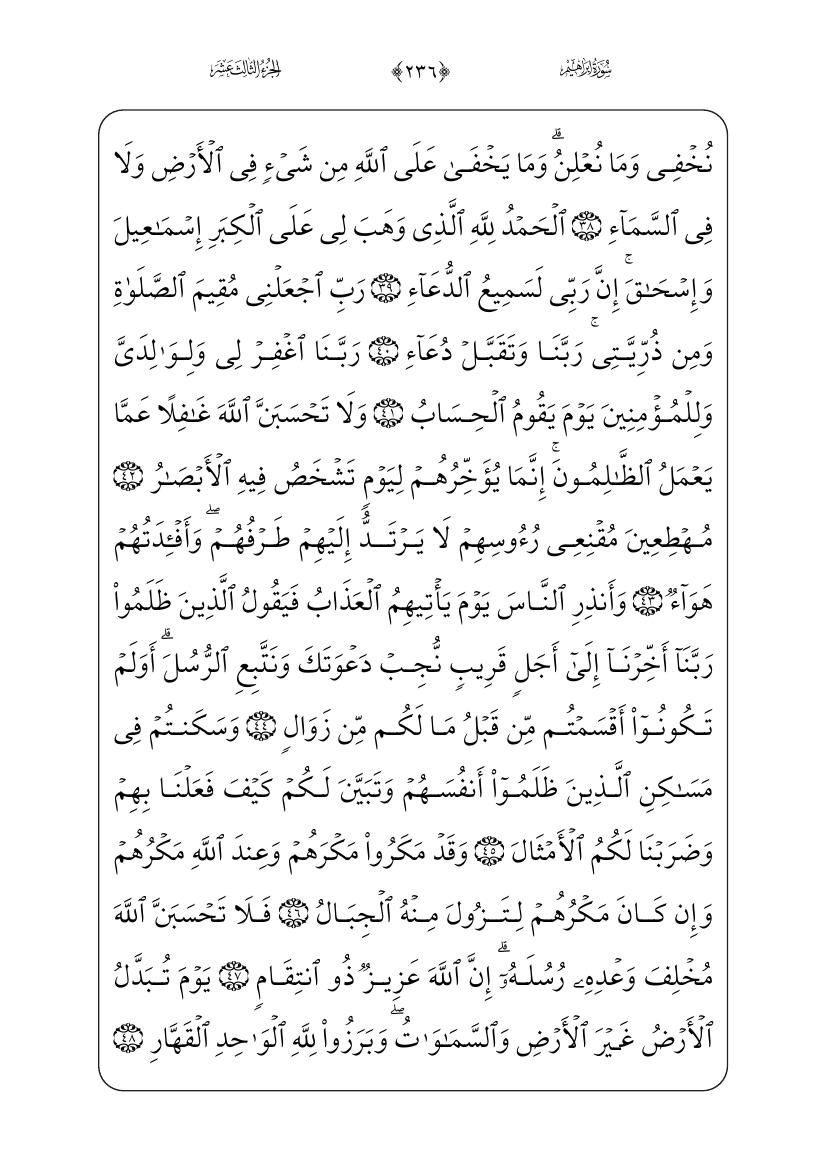 سُورَةُ إِبْرَاهِيمَ ﴿٢٣٦﴾ الجُزْءُ الثَّالِثَ عَشَرَ
نُخۡفِي وَمَا نُعۡلِنُۗ وَمَا يَخۡفَىٰ عَلَى ٱللَّهِ مِن شَيۡءٖ فِي ٱلۡأَرۡضِ وَلَا
فِي ٱلسَّمَآءِ ٣٨ ٱلۡحَمۡدُ لِلَّهِ ٱلَّذِي وَهَبَ لِي عَلَى ٱلۡكِبَرِ إِسۡمَٰعِيلَ
وَإِسۡحَٰقَۚ إِنَّ رَبِّي لَسَمِيعُ ٱلدُّعَآءِ ٣٩ رَبِّ ٱجۡعَلۡنِي مُقِيمَ ٱلصَّلَوٰةِ
وَمِن ذُرِّيَّتِيۚ رَبَّنَا وَتَقَبَّلۡ دُعَآءِ ٤٠ رَبَّنَا ٱغۡفِرۡ لِي وَلِوَٰلِدَيَّ
وَلِلۡمُؤۡمِنِينَ يَوۡمَ يَقُومُ ٱلۡحِسَابُ ٤١ وَلَا تَحۡسَبَنَّ ٱللَّهَ غَٰفِلًا عَمَّا
يَعۡمَلُ ٱلظَّٰلِمُونَۚ إِنَّمَا يُؤَخِّرُهُمۡ لِيَوۡمٖ تَشۡخَصُ فِيهِ ٱلۡأَبۡصَٰرُ ٤٢
مُهۡطِعِينَ مُقۡنِعِي رُءُوسِهِمۡ لَا يَرۡتَدُّ إِلَيۡهِمۡ طَرۡفُهُمۡۖ وَأَفۡـِٔدَتُهُمۡ
هَوَآءٞ ٤٣ وَأَنذِرِ ٱلنَّاسَ يَوۡمَ يَأۡتِيهِمُ ٱلۡعَذَابُ فَيَقُولُ ٱلَّذِينَ ظَلَمُواْ
رَبَّنَآ أَخِّرۡنَآ إِلَىٰٓ أَجَلٖ قَرِيبٖ نُّجِبۡ دَعۡوَتَكَ وَنَتَّبِعِ ٱلرُّسُلَۗ أَوَلَمۡ
تَكُونُوٓاْ أَقۡسَمۡتُم مِّن قَبۡلُ مَا لَكُم مِّن زَوَالٖ ٤٤ وَسَكَنتُمۡ فِي
مَسَٰكِنِ ٱلَّذِينَ ظَلَمُوٓاْ أَنفُسَهُمۡ وَتَبَيَّنَ لَكُمۡ كَيۡفَ فَعَلۡنَا بِهِمۡ
وَضَرَبۡنَا لَكُمُ ٱلۡأَمۡثَالَ ٤٥ وَقَدۡ مَكَرُواْ مَكۡرَهُمۡ وَعِندَ ٱللَّهِ مَكۡرُهُمۡ
وَإِن كَانَ مَكۡرُهُمۡ لِتَزُولَ مِنۡهُ ٱلۡجِبَالُ ٤٦ فَلَا تَحۡسَبَنَّ ٱللَّهَ
مُخۡلِفَ وَعۡدِهِۦ رُسُلَهُۥٓۗ إِنَّ ٱللَّهَ عَزِيزٞ ذُو ٱنتِقَامٖ ٤٧ يَوۡمَ تُبَدَّلُ
ٱلۡأَرۡضُ غَيۡرَ ٱلۡأَرۡضِ وَٱلسَّمَٰوَٰتُۖ وَبَرَزُواْ لِلَّهِ ٱلۡوَٰحِدِ ٱلۡقَهَّارِ ٤٨